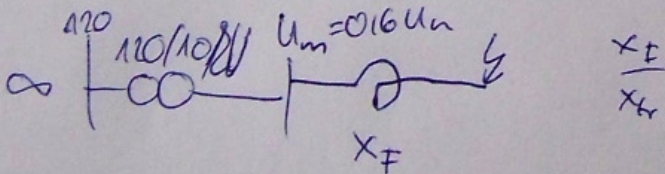 120
∞
120/10kV
U_m=0,6 U_n
x_F
x_F
x_tr